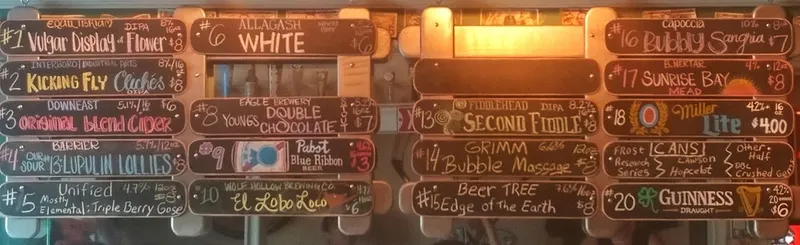 #1 EQUILIBRIUM DIPA 8% 16oz
Vulgar Display of Flower $8
INTERBORO/INDUSTRIAL ARTS 8%/16oz
#2 KICKING FLY Clichés $8
DIPA
DOWNEAST 5.1%/16 $6
#3 ORIGINAL BLEND CIDER
BARRIER 5.7% 12oz
#4 SOUR LUPULIN LOLLIES $8
Unified 4.7% 12oz
#5 Mostly
Elemental: Triple Berry Gose $8
#6 ALLAGASH
WHITE $6
EAGLE BREWERY
#8 YOUNGS DOUBLE
CHOCOLATE $7
#9 Pabst
Blue Ribbon
BEER $3
#10 WOLF HOLLOW BREWING CO.
El Lobo Loco $6
FIDDLEHEAD DIPA 8.2%
#13 SECOND FIDDLE $8
GRIMM 6.6% 12oz
#14 Bubble Massage $8
Beer TREE 7.6% 16oz
#15 Edge of the Earth $8
Capoccia 10%
#16 Bubbly Sangria $7
B.NEKTAR
#17 SUNRISE BAY $8
MEAD
#18 Miller 4.2% 16 oz
Lite $4.00
FROST CANS Other
Research LAWSON Half
Series Hopcelot DDC
Crushed
#20 GUINNESS 4.2% 20
DRAUGHT $6